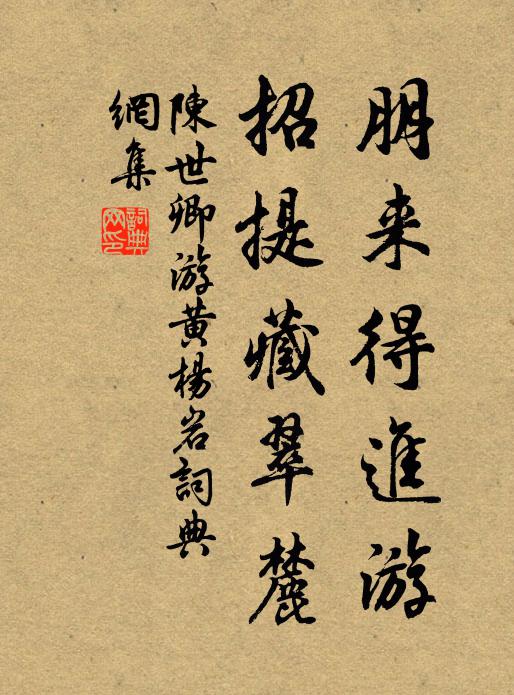 朋来得進游
招提藏翠麓
陳世卿游黃楊岩詞典
網集
詞典
网印